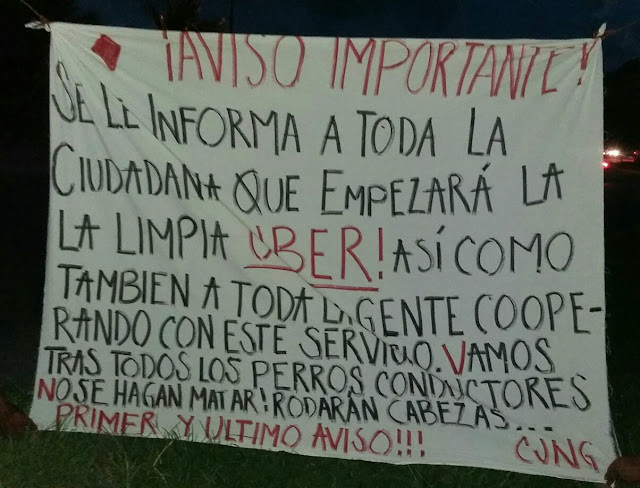 ¡AVISO IMPORTANTE!
SE LE INFORMA A TODA LA
CIUDADANA QUE EMPEZARÁ LA
LA LIMPIA ÜBER! ASÍ COMO
TAMBIEN A TODA LA GENTE COOPE-
RANDO CON ESTE SERVICIO. VAMOS
TRAS TODOS LOS PERROS CONDUCTORES
NO SE HAGAN MATAR! RODARÁN CABEZAS...
PRIMER Y ULTIMO AVISO!!!
CJNG